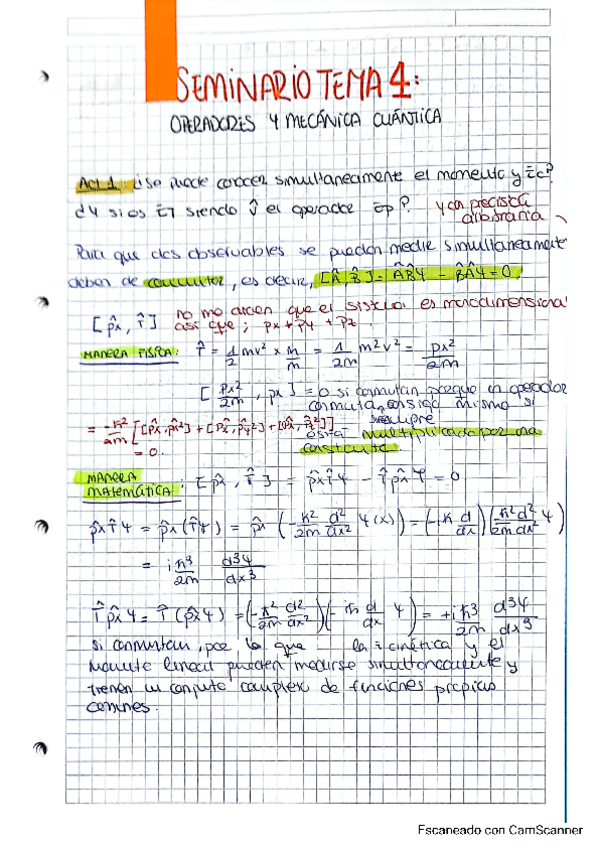 SEMINARIO TEMA 4:
OPERADORES Y MECÁNICA CUÁNTICA
Act 1. ¿Se puede conocer simultaneamente el momento y Ec?
si siendo el operador Ep? y con precisión
arbitraria
Para que dos observables se puedan medir simultaneamente
deben de conmutar, es decir, [Â, B̂] = ÂB̂Ψ - B̂ÂΨ = 0.
[p̂x, T̂] no me dicen que el sistema es monodimensional
así que; px + py + pz.
MANERA FISICA: T̂ = 1/2 mv² × m/m = 1/2m m²v² = px²/2m
[px²/2m, px] = 0 si conmutan porque un operador
conmuta consigo mismo si
siempre
= -ħ²/2m [[p̂x, p̂x²] + [p̂x, p̂y²] + [p̂x, p̂z²]]
está multiplicado por una
= 0. constante.
MANERA
MATEMÁTICA: [p̂x, T̂] = p̂xT̂Ψ - T̂p̂xΨ = 0
p̂xT̂Ψ = p̂x(T̂Ψ) = p̂x (-ħ²/2m d²/dx² Ψ(x)) = (-iħ d/dx)(ħ²/2m d²/dx² Ψ)
= iħ³/2m d³Ψ/dx³
T̂p̂xΨ = T̂(p̂xΨ) = (-ħ²/2m d²/dx²)(-iħ d/dx Ψ) = +iħ³/2m d³Ψ/dx³
si conmutan, por lo que la E cinética y el
momento lineal pueden medirse simultoneamente y
tienen un conjunto completo de funciones propias
comunes.
Escaneado con CamScanner